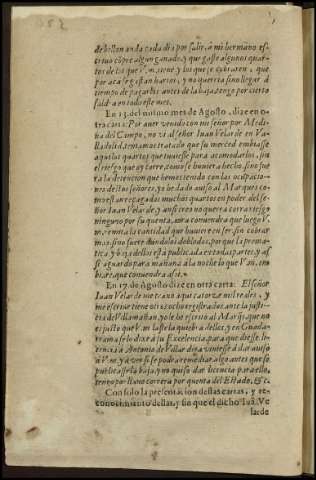 de vellon anda cada dia por salir, a mi hermano es-
criuo cõpre algun ganado, y que gaste algunos quar-
tos de los que V.m. tiene, y los que se cobraren, que
por aca se gastan hartos, y no querria sino llegar á
tiempo de pagarlos antes de la baja, tengo por cierto
saldra en todo este mes.
En 13. del mismo mes de Agosto, dize en o-
tra carta: Por auer venido con mi señor por Medi-
na del Campo, no vi al señor Iuan Velarde en Va-
lladolid, tenia mostrado que su merced embiasse
aquellos quartos que tuuiesse para acomodarlos, sin
el riesgo que ay corre, como se huuiera hecho, sino fue
ra la detencion que hemos tenido con las ocupacio-
nes destos señores, yo he dado auiso al Marques como
estan entregados muchos quartos en poder del se-
ñor Iuan Velarde, y aun creo no querra corra riesgo
ninguno por su quenta, aura conuendra que luego V.
m. remita la cantidad que huuiere en ser, sin cobrar
mas, sino fuere dandolos doblados, porque la prema-
tica, y baja dellos està publicada en todas partes, y as
si aguardo para mañana à la noche lo que V.m. em-
biare, que conuendra assi.
En 17. de Agosto dize en otra carta: El señor
Iuan Velarde me traxo aqui catorze mil reales, y
me escriue tiene otros ocho registrados ante la justi-
cia de Villamañan, yo le he escrito al Marqs. que no
es justo que V.m. laste la quiebra dellos, y en Guada-
rrama se lo dixe à su Excelencia, para que diesse li-
cencia à Antonio de Vellar diga viniesse à dar auiso
à V.m. y à ver si se podia remediar algo antes que se
publicasse la baja, y no quiso dar licencia para ello,
tengo por llano correra por quenta del Estado, &c.
Con solo la presentacion destas cartas, y re-
conocimiento dellas, y sin que el dicho Iuã. Ve
larde